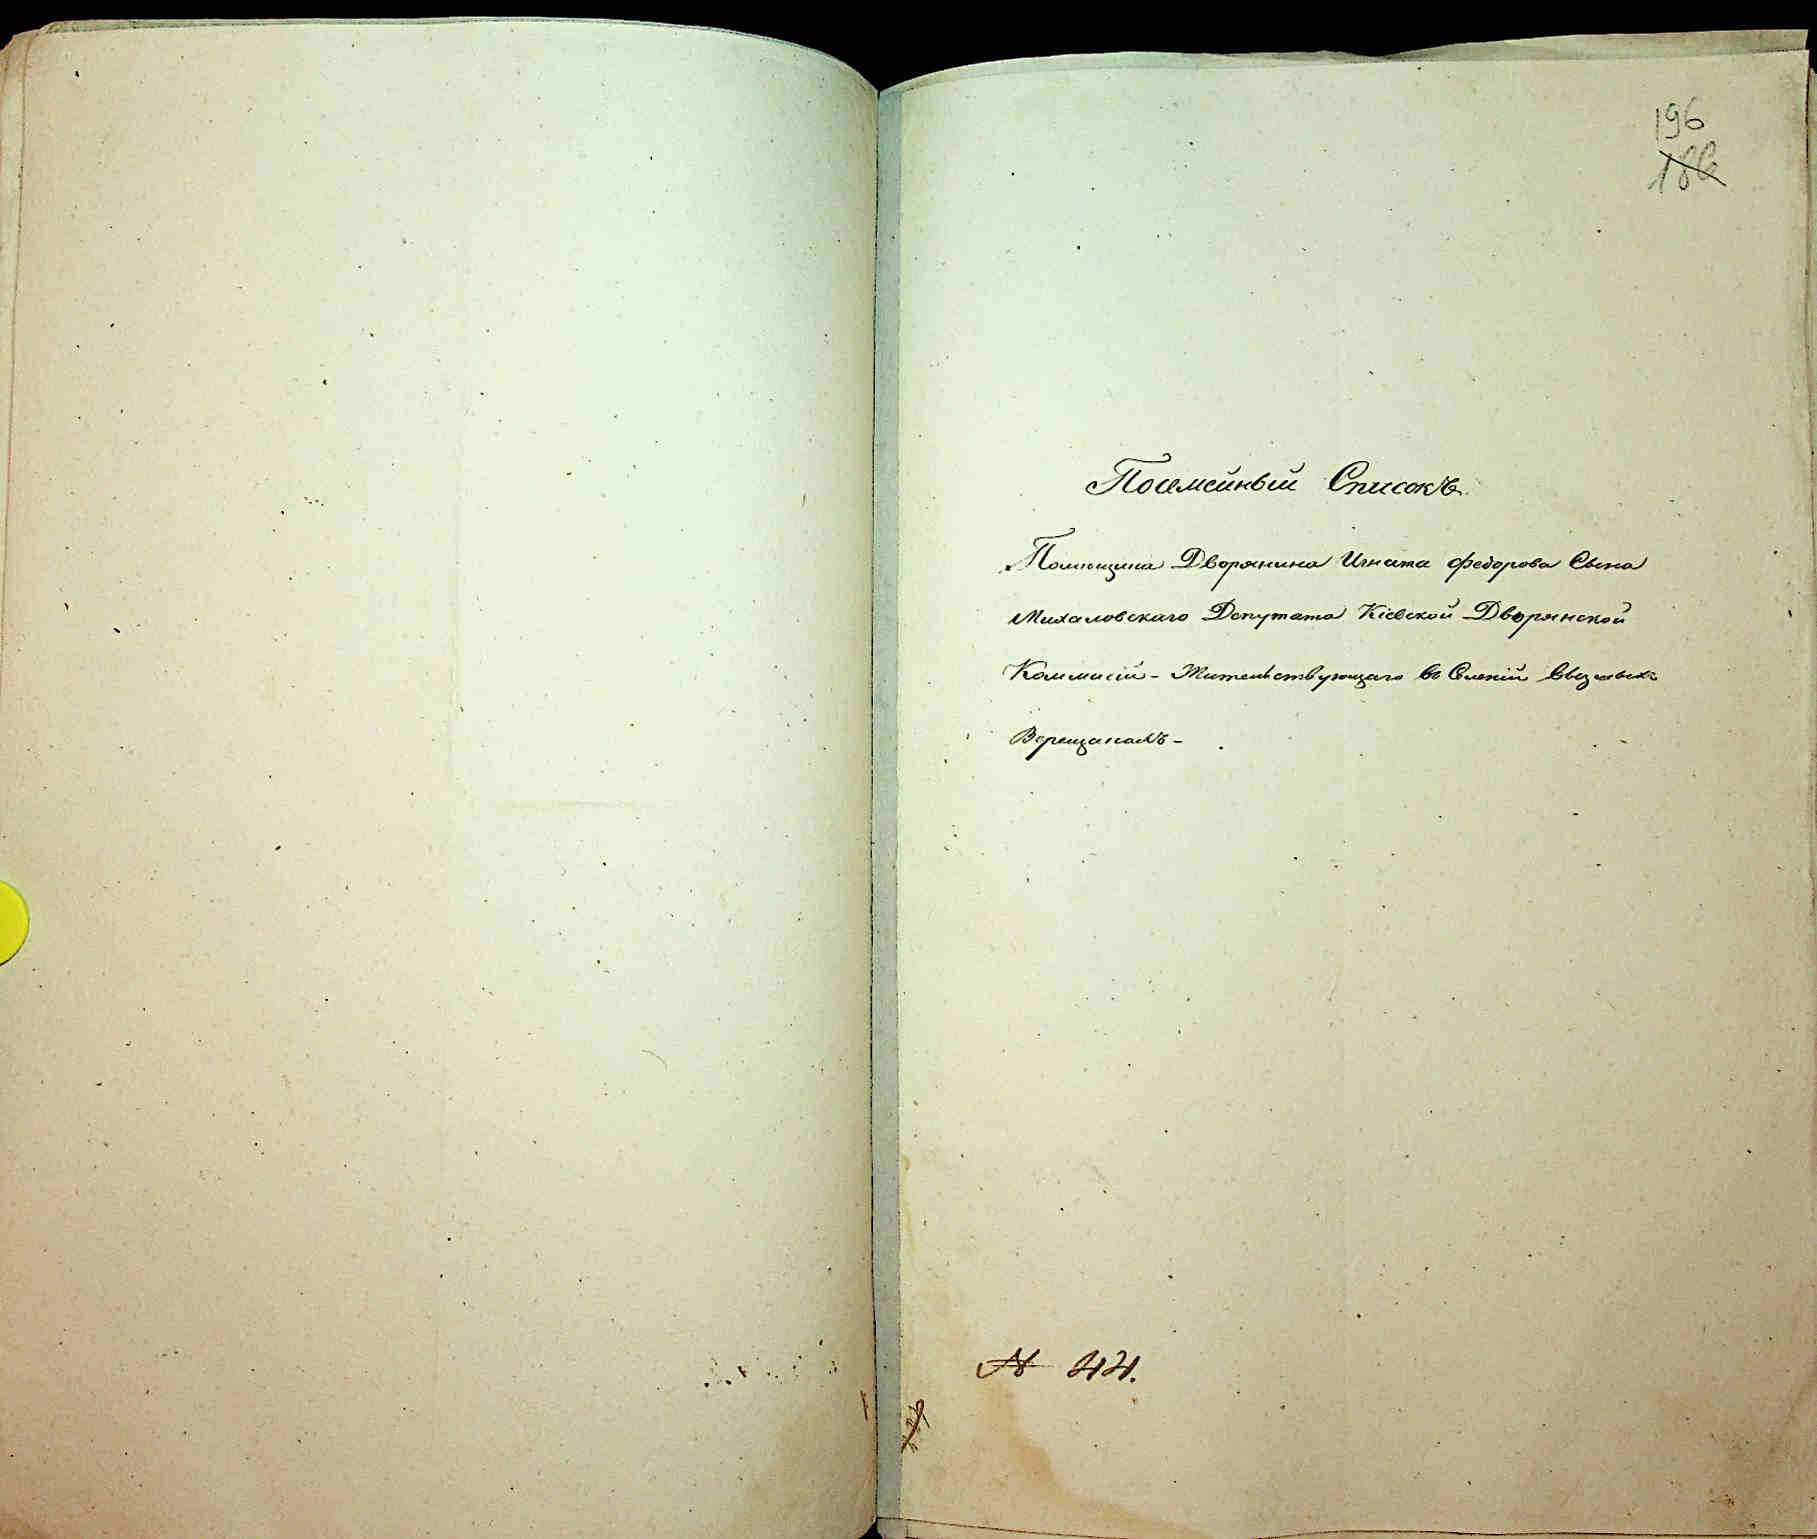 196
186
Посемейный Списокъ
Помещика Дворянина Игната Федорова Сына
Михаловскаго Депутата Кіевской Дворянской
Коммисіи - Жительствующаго въ Селеніи
Верещакахъ -
№ 44.